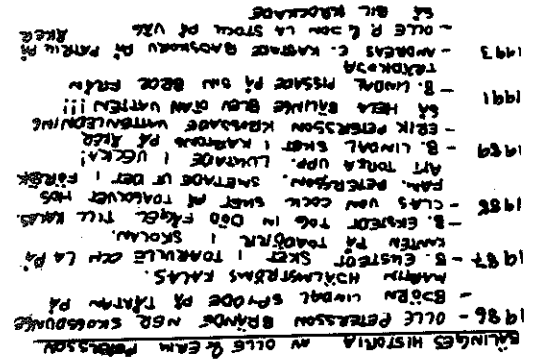 BÄLINGES HISTORIA AV OLLE & ERIK PETERSSON
1986 - OLLE PETERSSON BRÄNDE NER SKOGSDUNGE
- BJÖRN LINDAL SPYDDE PÅ TÅRTAN PÅ
MARTIN HJÄLMSTRÖMS KALAS.
1987 - B. EKSTEDT SKET I TOARULLE OCH LA PÅ
KANTEN PÅ TOADÖRR I SKOLAN.
- B. EKSTEDT TOG IN DÖD FÅGEL TILL KALAS.
1988 - CLAS VON COCK SKET PÅ TOAGOLVET HOS
FAM. PETERSSON. SMETADE UT DET I FÖRSÖK
ATT TORKA UPP. LUKTADE I VECKA!
1989 - B. LINDAL SKET I KARTONG PÅ ÅKER
- ERIK PETERSSON KROSSADE VATTENLEDNING
SÅ HELA BÄLINGE BLEV UTAN VATTEN!!!
1991 - B. LINDAL PISSADE PÅ SIN BROR FRÅN
TRÄDKOJA
1993 - ANDREAS E. KASTADE RADSKORV PÅ PATRIK PÅ ÅKER
- OLLE P. & JON LA STOCK PÅ VÄG
SÅ BIL KROCKADE